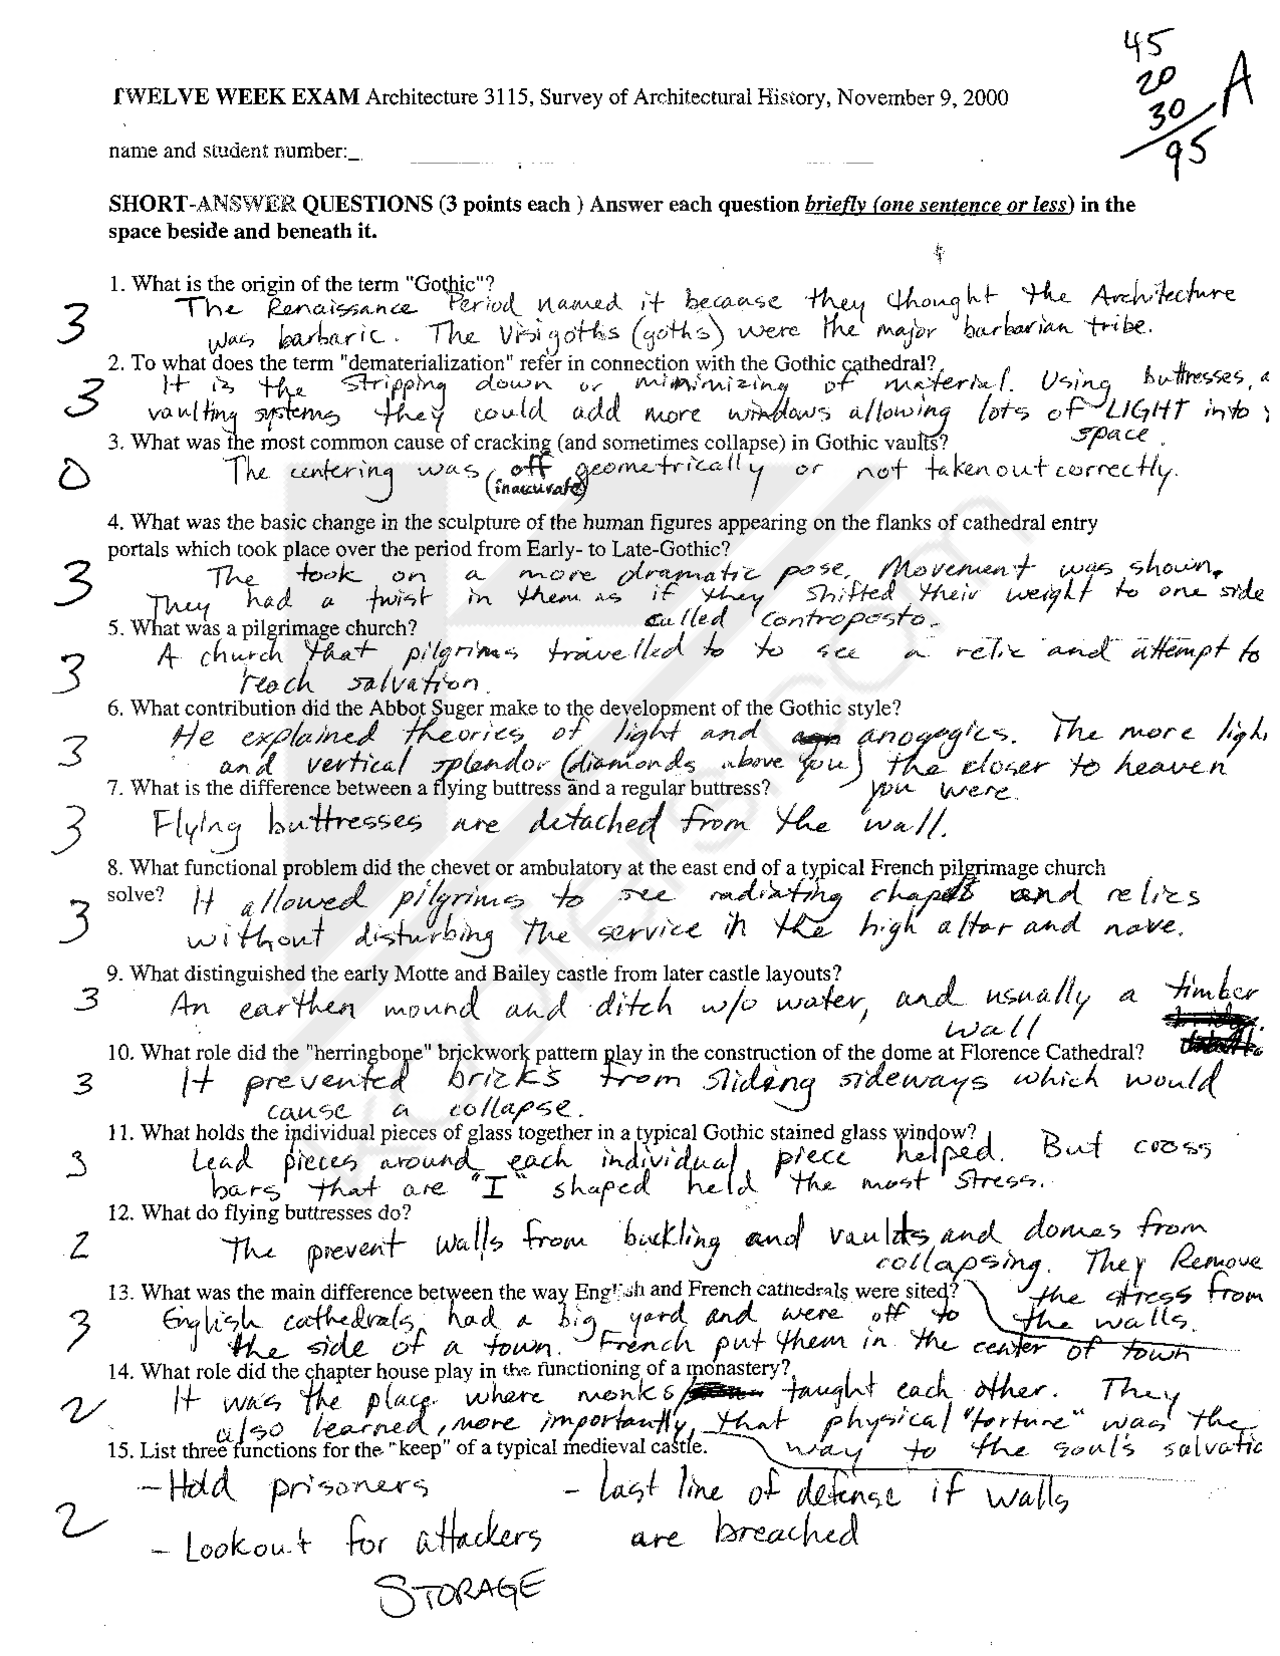 45
20
30
95
A
TWELVE WEEK EXAM Architecture 3115, Survey of Architectural History, November 9, 2000
name and student number:_
SHORT-ANSWER QUESTIONS (3 points each ) Answer each question briefly (one sentence or less) in the
space beside and beneath it.
1. What is the origin of the term "Gothic"?
The Renaissance Period named it because they thought the Architecture
3
was barbaric. The Visigoths (goths) were the major barbarian tribe.
2. To what does the term "dematerialization" refer in connection with the Gothic cathedral?
It is the stripping down or mimimizing of material. Using buttresses,
3
vaulting systems they could add more windows allowing lots of LIGHT into
space.
3. What was the most common cause of cracking (and sometimes collapse) in Gothic vaults?
0
The centering was off geometrically or not taken out correctly.
(inaccurate)
4. What was the basic change in the sculpture of the human figures appearing on the flanks of cathedral entry
portals which took place over the period from Early- to Late-Gothic?
3
The took on a more dramatic pose. Movement was shown.
They had a twist in them as if they shifted their weight to one side
called controposto.
5. What was a pilgrimage church?
3
A church that pilgrims travelled to to see a relic and attempt to
reach salvation.
6. What contribution did the Abbot Suger make to the development of the Gothic style?
3
He explained theories of light and anogogics. The more
and vertical splendor (diamonds above you) the closer to heaven
you were.
7. What is the difference between a flying buttress and a regular buttress?
3
Flying buttresses are detached from the wall.
8. What functional problem did the chevet or ambulatory at the east end of a typical French pilgrimage church
solve? It allowed pilgrims to see radiating chapels and relics
3
without disturbing the service in the high altar and nave.
9. What distinguished the early Motte and Bailey castle from later castle layouts?
3
An earthen mound and ditch w/o water, and usually a timber
wall
10. What role did the "herringbone" brickwork pattern play in the construction of the dome at Florence Cathedral?
3
It prevented bricks from sliding sideways which would
cause a collapse.
11. What holds the individual pieces of glass together in a typical Gothic stained glass window?
3
Lead pieces around each individual piece helped. But cross
bars that are "I" shaped held the most stress.
12. What do flying buttresses do?
2
The prevent walls from buckling and vaults and domes from
collapsing. They Remove
the stress from
the walls.
13. What was the main difference between the way English and French cathedrals were sited?
3
English cathedrals had a big yard and were off to
the side of a town. French put them in the center of town
14. What role did the chapter house play in the functioning of a monastery?
2
It was the place where monks taught each other. They
also learned, more importantly, that physical "torture" was the
way to the soul's
15. List three functions for the "keep" of a typical medieval castle.
2
- Hold prisoners
- Last line of defense if walls
are breached
- Lookout for attackers
STORAGE